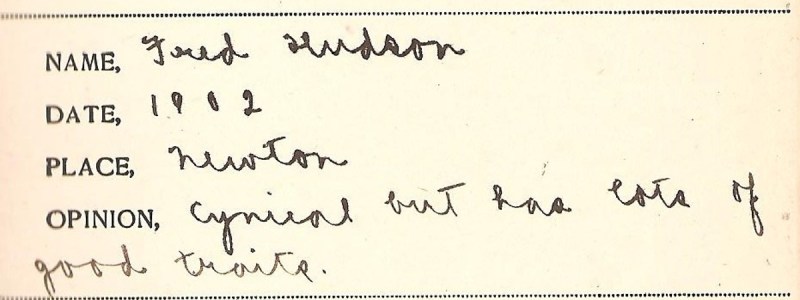 NAME, Fred Hudson
DATE, 1902
PLACE, Newton
OPINION, Cynical but has lots of
good traits.